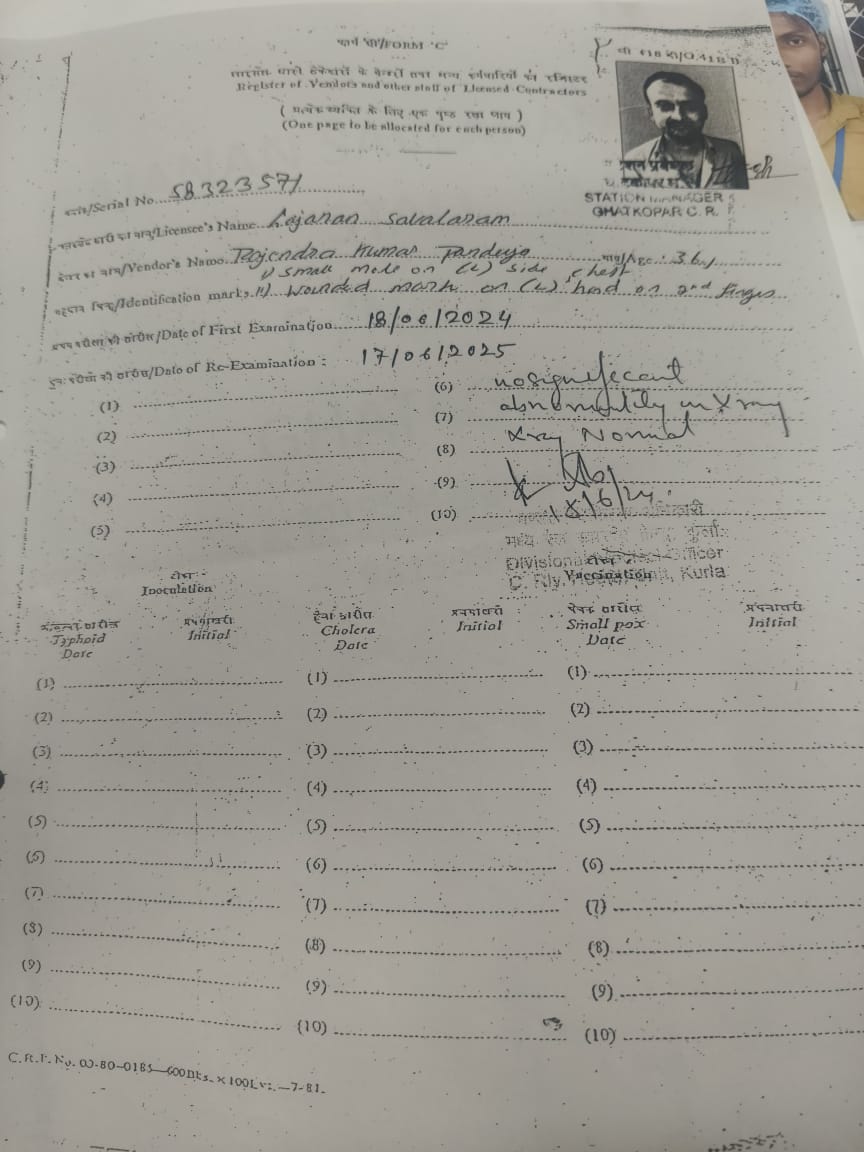 फार्म 'सी'/FORM 'C'
सी 418 बी/G.418 B
लाइसेंस धारी ठेकेदारों के वेन्डरों तथा अन्य कर्मचारियों का रजिस्टर
Register of Vendors and other staff of Licensed Contractors
( प्रत्येक व्यक्ति के लिए एक पृष्ठ रखा जाय )
(One page to be allocated for each person)
STATION MANAGER
GHATKOPAR C. R.
क्रमांक/Serial No. 58323571
लाइसेंस धारी का नाम/Licensee's Name Gajanan Savalaram
वेन्डर का नाम/Vendor's Name Rajendra Kumar Pandeya आयु/Age : 36y
i) small mole on (L) side chest
पहचान चिन्ह/Identification marks ii) wounded mark on (L) hand on 2nd finger
प्रथम परीक्षा की तारीख/Date of First Examination 18/06/2024
पुनः परीक्षा की तारीख/Date of Re-Examination : 17/06/2025
(1)
(2)
(3)
(4)
(5)
(6) no significant
(7) abnormality in X ray
(8) Xray Normal
(9)
(10) 18/6/24
Divisional Officer
C. Rly. Kurla
टीका
Inoculation
टीका
Vaccination
तारीख
Typhoid
Date
आद्याक्षरी
Initial
हैजा तारीख
Cholera
Date
आद्याक्षरी
Initial
चेचक तारीख
Small pox
Date
आद्याक्षरी
Initial
(1) (1) (1)
(2) (2) (2)
(3) (3) (3)
(4) (4) (4)
(5) (5) (5)
(6) (6) (6)
(7) (7) (7)
(8) (8) (8)
(9) (9) (9)
(10) (10) (10)